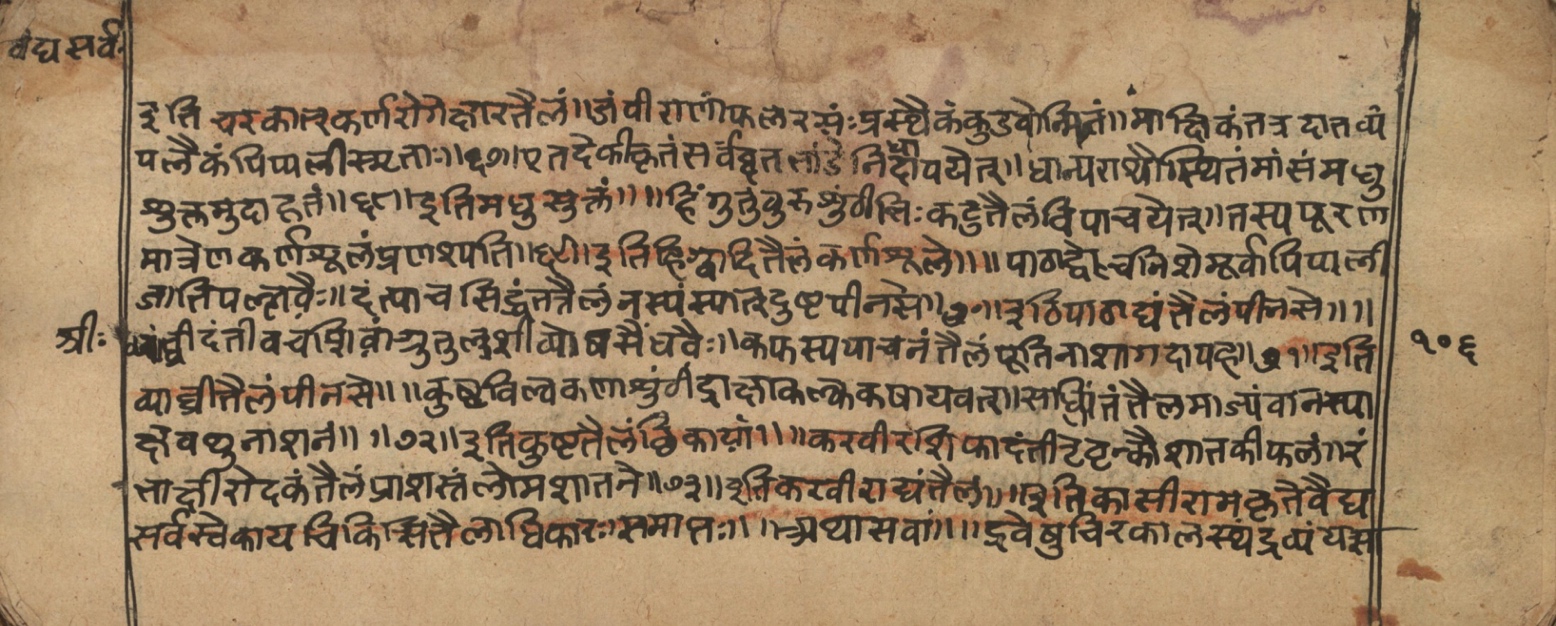 वैद्य सर्व.
इति चरकात्कर्णरोगे क्षारतैलं॥ जंवीराणां फलरसं प्रस्थैकं कुडवोन्मितं॥ माक्षिकं तत्र दातव्यं
पलैकं पिप्पली स्मृताः॥६७॥ एतदेकीकृतं सर्वं घृतभांडे निधापयेत्॥ धान्यराशौ स्थितं मांसं मधु
शुक्तमुदाहृतं॥६८॥ इति मधुसुक्तं॥ ॥ हिंगुतुंवुरुशुंठीभिः कटुतैलं विपाचयेत्॥ तस्य पूरण
मात्रेण कर्णशूलं प्रणश्यति॥६९॥ इति हिंग्वादितैलं कर्णशूले॥ ॥ पाठाद्वे च निशे मूर्वापिप्पली
जातिपल्लवैः॥ दंत्या च सिद्धं तत्तैलं नस्यं स्यात् दुष्टपीनसे॥७०॥ इति पाठाद्यं तैलं पीनसे॥ ॥
श्रीः
व्याघ्रीदंतीवचाशिग्रुतुलशीव्योषसैंधवैः॥ कफस्य पाचनं तैलं पूतिनाशागदापह॥७१॥ इति
१०६
व्याघ्रीतैलं पीनसे॥ ॥ कुष्टविल्वकणाशुंठीद्राक्षाकल्ककषायवत्॥ साधितं तैलमाज्यं वा नस्या
क्षवथुनाशनं॥ ॥७२॥ इति कुष्टतैलं छिकायां॥ ॥ करवीरशिफादंतीतृवृत्कोशातकीफलं॥ रं
भाक्षीरोदकं तैलं प्राशस्तं लोमशातने॥७३॥ इति करवीराद्यं तैलं॥ ॥ इति कासीरामकृते वैद्य
सर्वस्वे कायचिकित्सिततैलाधिकारः समाप्तः॥ ॥ अथासवां॥ ॥ द्रवेषु चिरकालस्थं द्रव्यं यत्सं